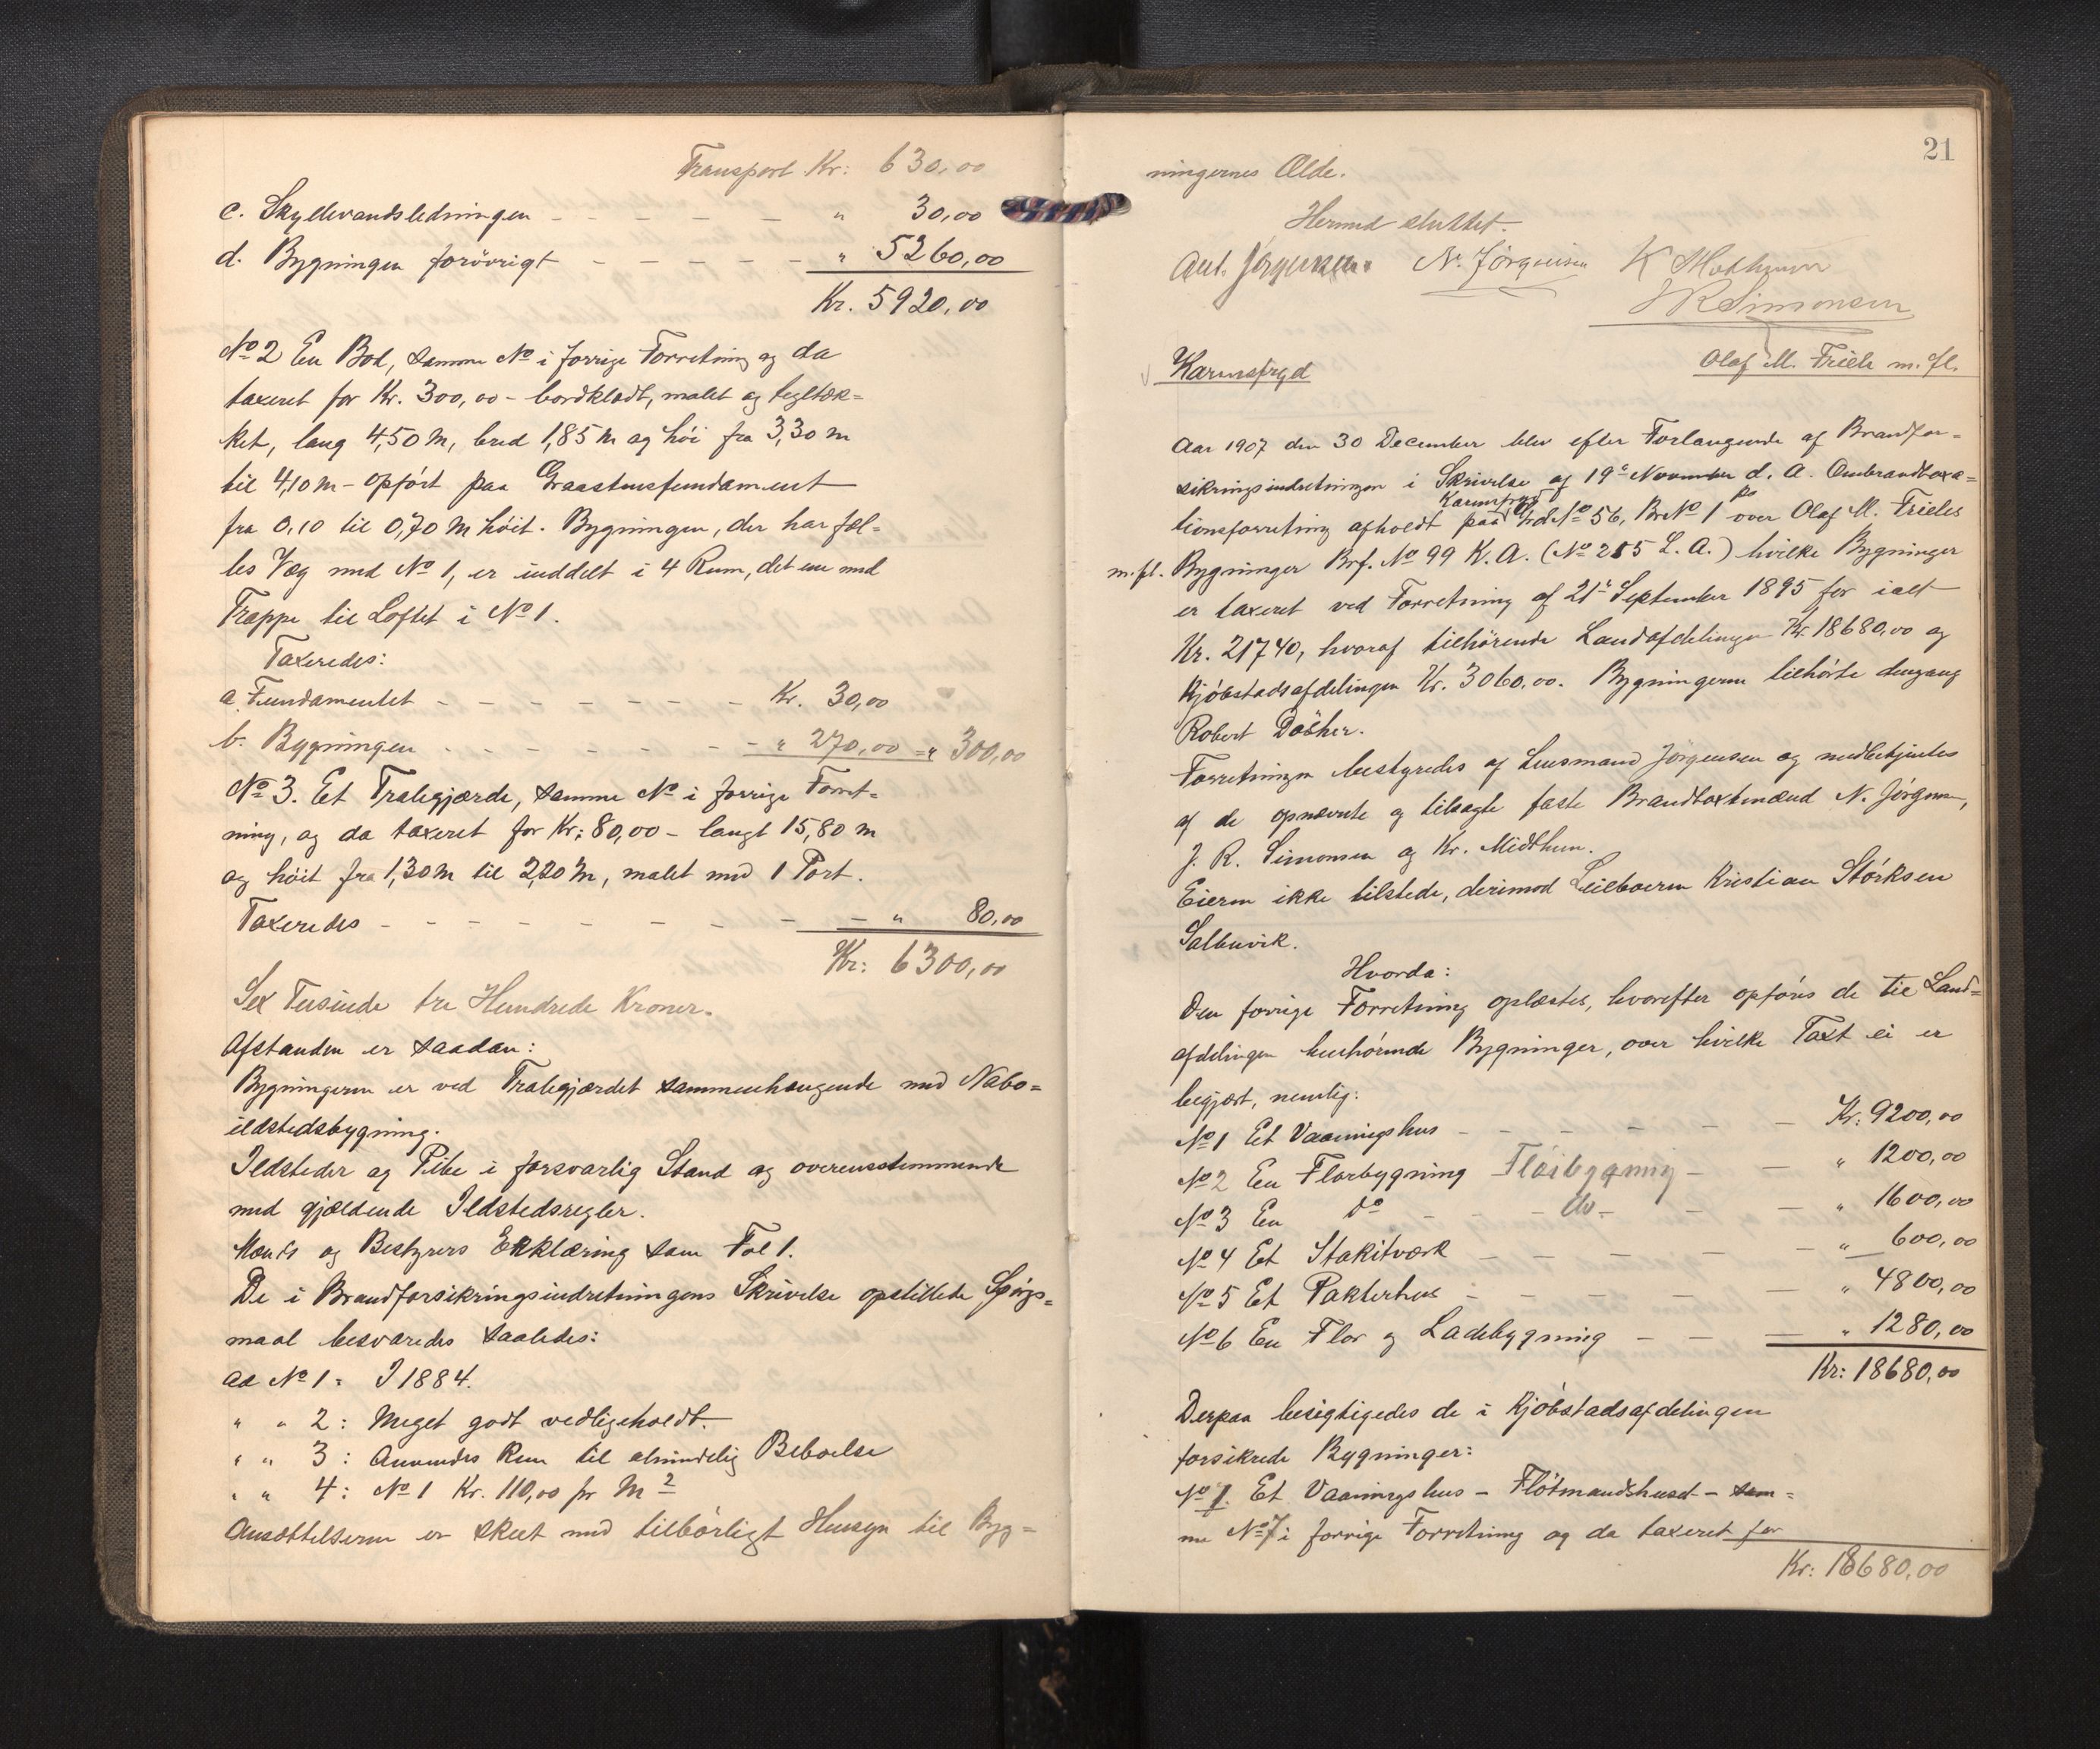 Transport Kr: 630,00
c. Skyllevandsledningen - - - - - " 30,00
d. Bygningen forövrigt - - - - - " 5260,00
Kr. 5920,00
No 2 En Bod, samme No i forrige Forretning og da
taxeret for Kr. 300,00 - bordklædt, malet og tegltæk=
ket, lang 4,50 M, bred 1,85 M og høi fra 3,30 m
til 4,10 m - opført paa Graastensfundament
fra 0,10 til 0,70 M høit. Bygningen, der har fæl=
les Væg med No 1, er inddelt i 4 Rum, det ene med
Trappe til Loftet i No 1.
Taxeredes:
a. Fundamentet - - - - - - - Kr. 30,00
b. Bygningen - - - - - - - " 270,00 = " 300,00
No 3. Et Traligjærde, samme No i forrige Forret=
ning, og da taxeret for Kr: 80,00 - langt 15,80 m
og høit fra 1,30 M til 2,20 M, malet med 1 Port.
Taxeredes - - - - - - - - " 80,00
Kr: 6300,00
Sex Tusinde tre Hundrede Kroner.
Afstanden er saadan:
Bygningerne er ved Traligjærdet sammenhængende med Nabo=
ildstedsbygning.
Ildsteder og Pibe i forsvarlig Stand og overensstemmende
med gjældende Ildstedsregler.
Mænds og Bestyrers Erklæring som Fol 1.
De i Brandforsikringsindretningens Skrivelse opstillede Spörgs=
maal besvaredes saaledes:
ad No 1: I 1884.
" " 2: Meget godt vedligeholdt.
" " 3: Anvendes kun til almindelig Beboelse
" " 4: No 1 Kr. 110,00 pr M2
Ansættelserne er skeet med tilbörligt Hensyn til Byg=
21
ningernes Ælde.
Hermed sluttet.
Ant. Jørgensen. N. Jörgensen K Midthun
J R Simonsen
Karensfryd Olaf M. Friele m. fl.
Aar 1907 den 30 December blev efter Forlangende af Brandfor=
sikringsindretningen i Skrivelse af 19de November d. A. Ombrandtaxa=
tionsforretning afholdt paa Karensfryd Grd No 56, Br No 1 over Olaf M. Frieles
m. fl. Bygninger Brf. No 99 K. A. (No 255 L. A.) hvilke Bygninger
er taxeret ved Forretning af 21de September 1895 for ialt
Kr. 21740, hvoraf tilhørende Landafdelingen Kr. 18680,00 og
Kjöbstadsafdelingen Kr. 3060,00. Bygningerne tilhörte dengang
Robert Döscher.
Forretningen bestyredes af Lensmand Jørgensen og medbetjentes
af de opnævnte og tilsagte faste Brandtaxtmænd N. Jörgensen,
J. R. Simonsen og Kr. Midthun.
Eieren ikke tilstede, derimod Leilboeren Kristian Störksen
Salbuvik.
Hvorda:
Den forrige Forretning oplæstes, hvorefter opføres de til Land=
afdelingen henhörende Bygninger, over hvilke Taxt ei er
begjært, nemlig:
No 1 Et Vaaningshus - - - - - Kr: 9200,00
No 2 En Florbygning Florbygning - - " 1200,00
No 3 En do - - - do - - - " 1600,00
No 4 Et Stakitværk - - - - - " 600,00
No 5 Et Pakterhus - - - - - " 4800,00
No 6 En Flor og Ladebygning - - - " 1280,00
Kr: 18680,00
Derpaa besigtigedes de i Kjöbstadsafdelingen
forsikrede Bygninger:
No 1. Et Vaaningshus - Flötmandshuset - sam=
me No 7 i forrige Forretning og da taxeret for
Kr: 18680,00